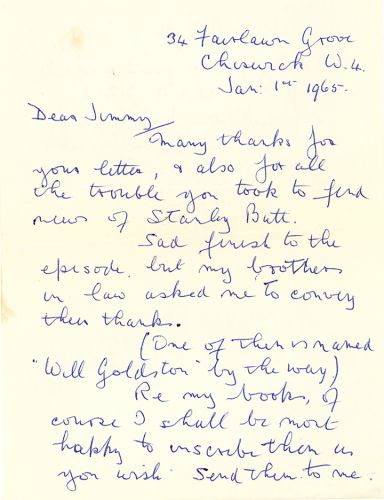 34 Fairlawn Grove
Chiswick W.4.
Jan: 1st 1965.
Dear Jimmy
Many thanks for
your letter, & also for all
the trouble you took to find
news of Stanley Butt.
Sad finish to the
episode, but my brothers
in law asked me to convey
their thanks.
(One of them is named
"Will Goldston" by the way)
Re my books, of
course I shall be most
happy to inscribe them as
you wish. Send them to me.